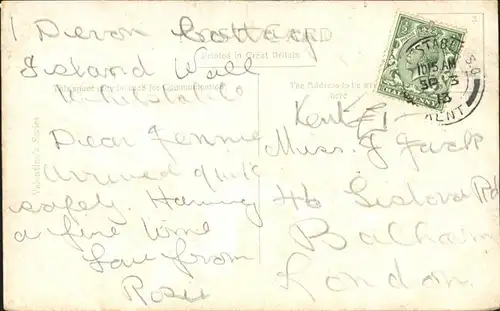 1 Devon Cottage
POST CARD
Printed in Great Britain
Island Wall
This space may be used for Communication
The Address to be written here
Whitstable
Kent
Dear Jennie
arrived quite
safely. Having
a fine time
Love from
Rosie
Valentine's Series
Miss J Jack
46 Sistova Rd
Balham
London
10 15 AM
13
KENT
3